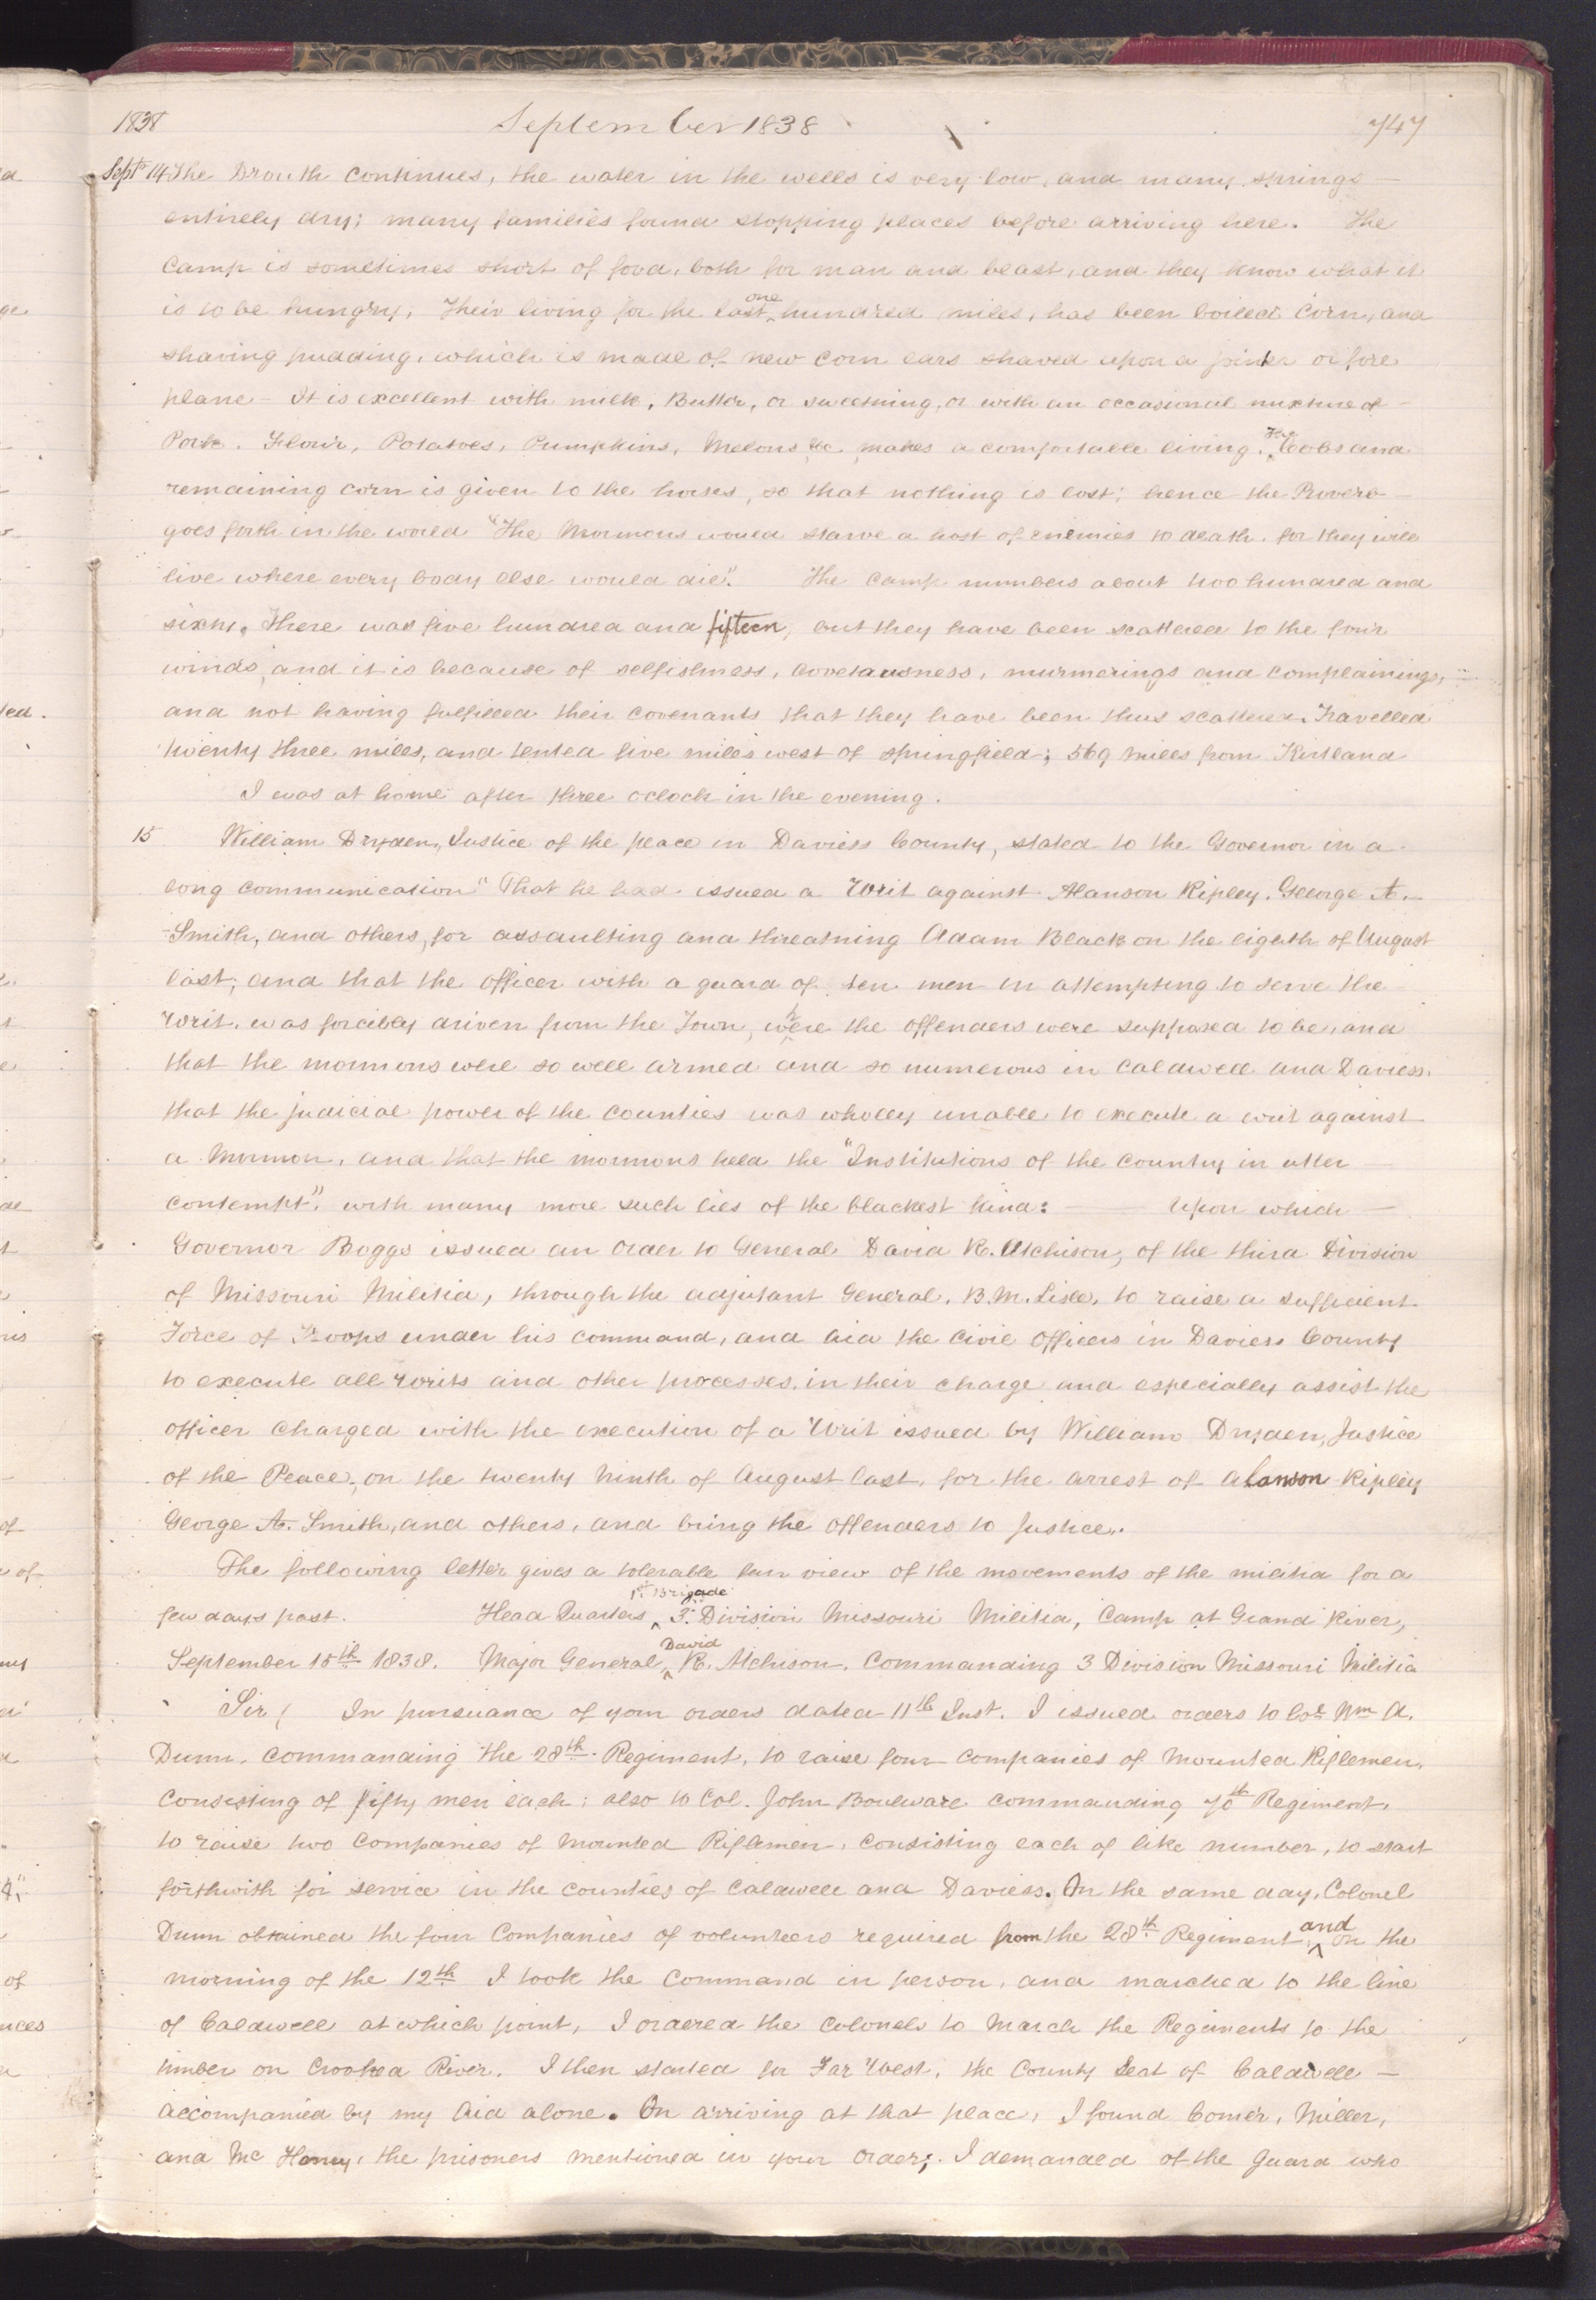 1838 September 1838 747
Sept 14 The Drouth continues, the water in the wells is very low, and many springs
entirely dry; many families found stopping places before arriving here. The
Camp is sometimes short of food, both for man and beast, and they know what it
is to be hungry, Their living for the last ^one hundred miles, has been boiled Corn, and
shaving pudding, which is made of new corn ears shaved upon a jointer or fore
plane – It is excellent with milk, Butter, or sweetning, or with an occasional mixture of
Pork. Flour, Potatoes, Pumpkins, Melons &c makes a comfortable living. ^The Cobs and
remaining corn is given to the horses, so that nothing is lost; hence the Proverb
goes forth in the world "The Mormons would starve a host of enemies to death, for they will
live where every body else would die". The camp numbers about two hundred and
sixty. There was five hundred and fifteen, but they have been scattered to the four
winds, and it is because of selfishness, covetousness, murmerings and complainings,
and not having fulfilled their covenants that they have been thus scattered. Travelled
twenty three miles, and tented five miles west of Springfield; 569 miles from Kirtland
I was at home after three oclock in the evening.
15 William Dryden, Justice of the peace in Daviess County, stated to the Governor in a
long communication "That he had issued a Writ against Alanson Ripley, George A.
Smith, and others, for assaulting and threatning Adam Black on the eighth of August
last; and that the officer with a guard of ten men in attempting to serve the
Writ, was forcibly driven from the Town, w^here the offenders were supposed to be, and
that the mormons were so well armed and so numerous in Caldwell and Daviess,
that the judicial power of the counties was wholly unable to execute a writ against
a Mormon, and that the mormons held the "Institutions of the country in utter
contempt", with many more such lies of the blackest kind: — Upon which —
Governor Boggs issued an Order to General David R. Atchison, of the third Division
of Missouri Militia, through the adjutant General, B. M. Lisle, to raise a sufficient
Force of Troops under his command, and aid the Civil Officers in Daviess County
to execute all Writs and other processes in their charge and especially assist the
officer charged with the execution of a Writ issued by William Dryden, Justice
of the Peace, on the twenty Ninth of August last, for the arrest of Alanson Ripley
George A. Smith, and others, and bring the offenders to Justice.
The following letter gives a tolerable fair view of the movements of the militia for a
few days past. Head Quarters ^1st. Brigade 3d. Division Missouri Militia, Camp at Grand River,
September 15th 1838. Major General ^David R. Atchison, Commanding 3 Division Missouri Militia
Sir, In pursuance of your orders dated 11th Inst. I issued orders to Col. Wm A.
Dunn, commanding the 28th. Regiment, to raise four companies of Mounted Riflemen,
Consisting of fifty men each; also to Col. John Boulware commanding 70th Regiment,
to raise two Companies of Mounted Riflemen, consisting each of like number, to start
forthwith for service in the counties of Caldwell and Daviess. On the same day, Colonel
Dunn obtained the four Companies of volunteers required from the 28th. Regiment, ^and on the
morning of the 12th I took the command in person, and marched to the line
of Caldwell at which point, I ordered the colonels to March the Regiments to the
timber on Crooked River. I then started for Far West, the County Seat of Caldwell —
accompanied by my Aid alone. On arriving at that place, I found Comer, Miller,
and Mc Honey, the prisoners mentioned in your Order; I demanded of the Guard who